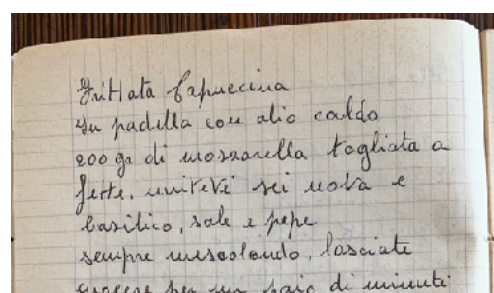 Frittata Capuccina
In padella con olio caldo
200 gr di mozzarella tagliata a
fette, unitevi sei uova e
basilico, sale e pepe
sempre mescolando, lasciate
cuocere per un paio di minuti